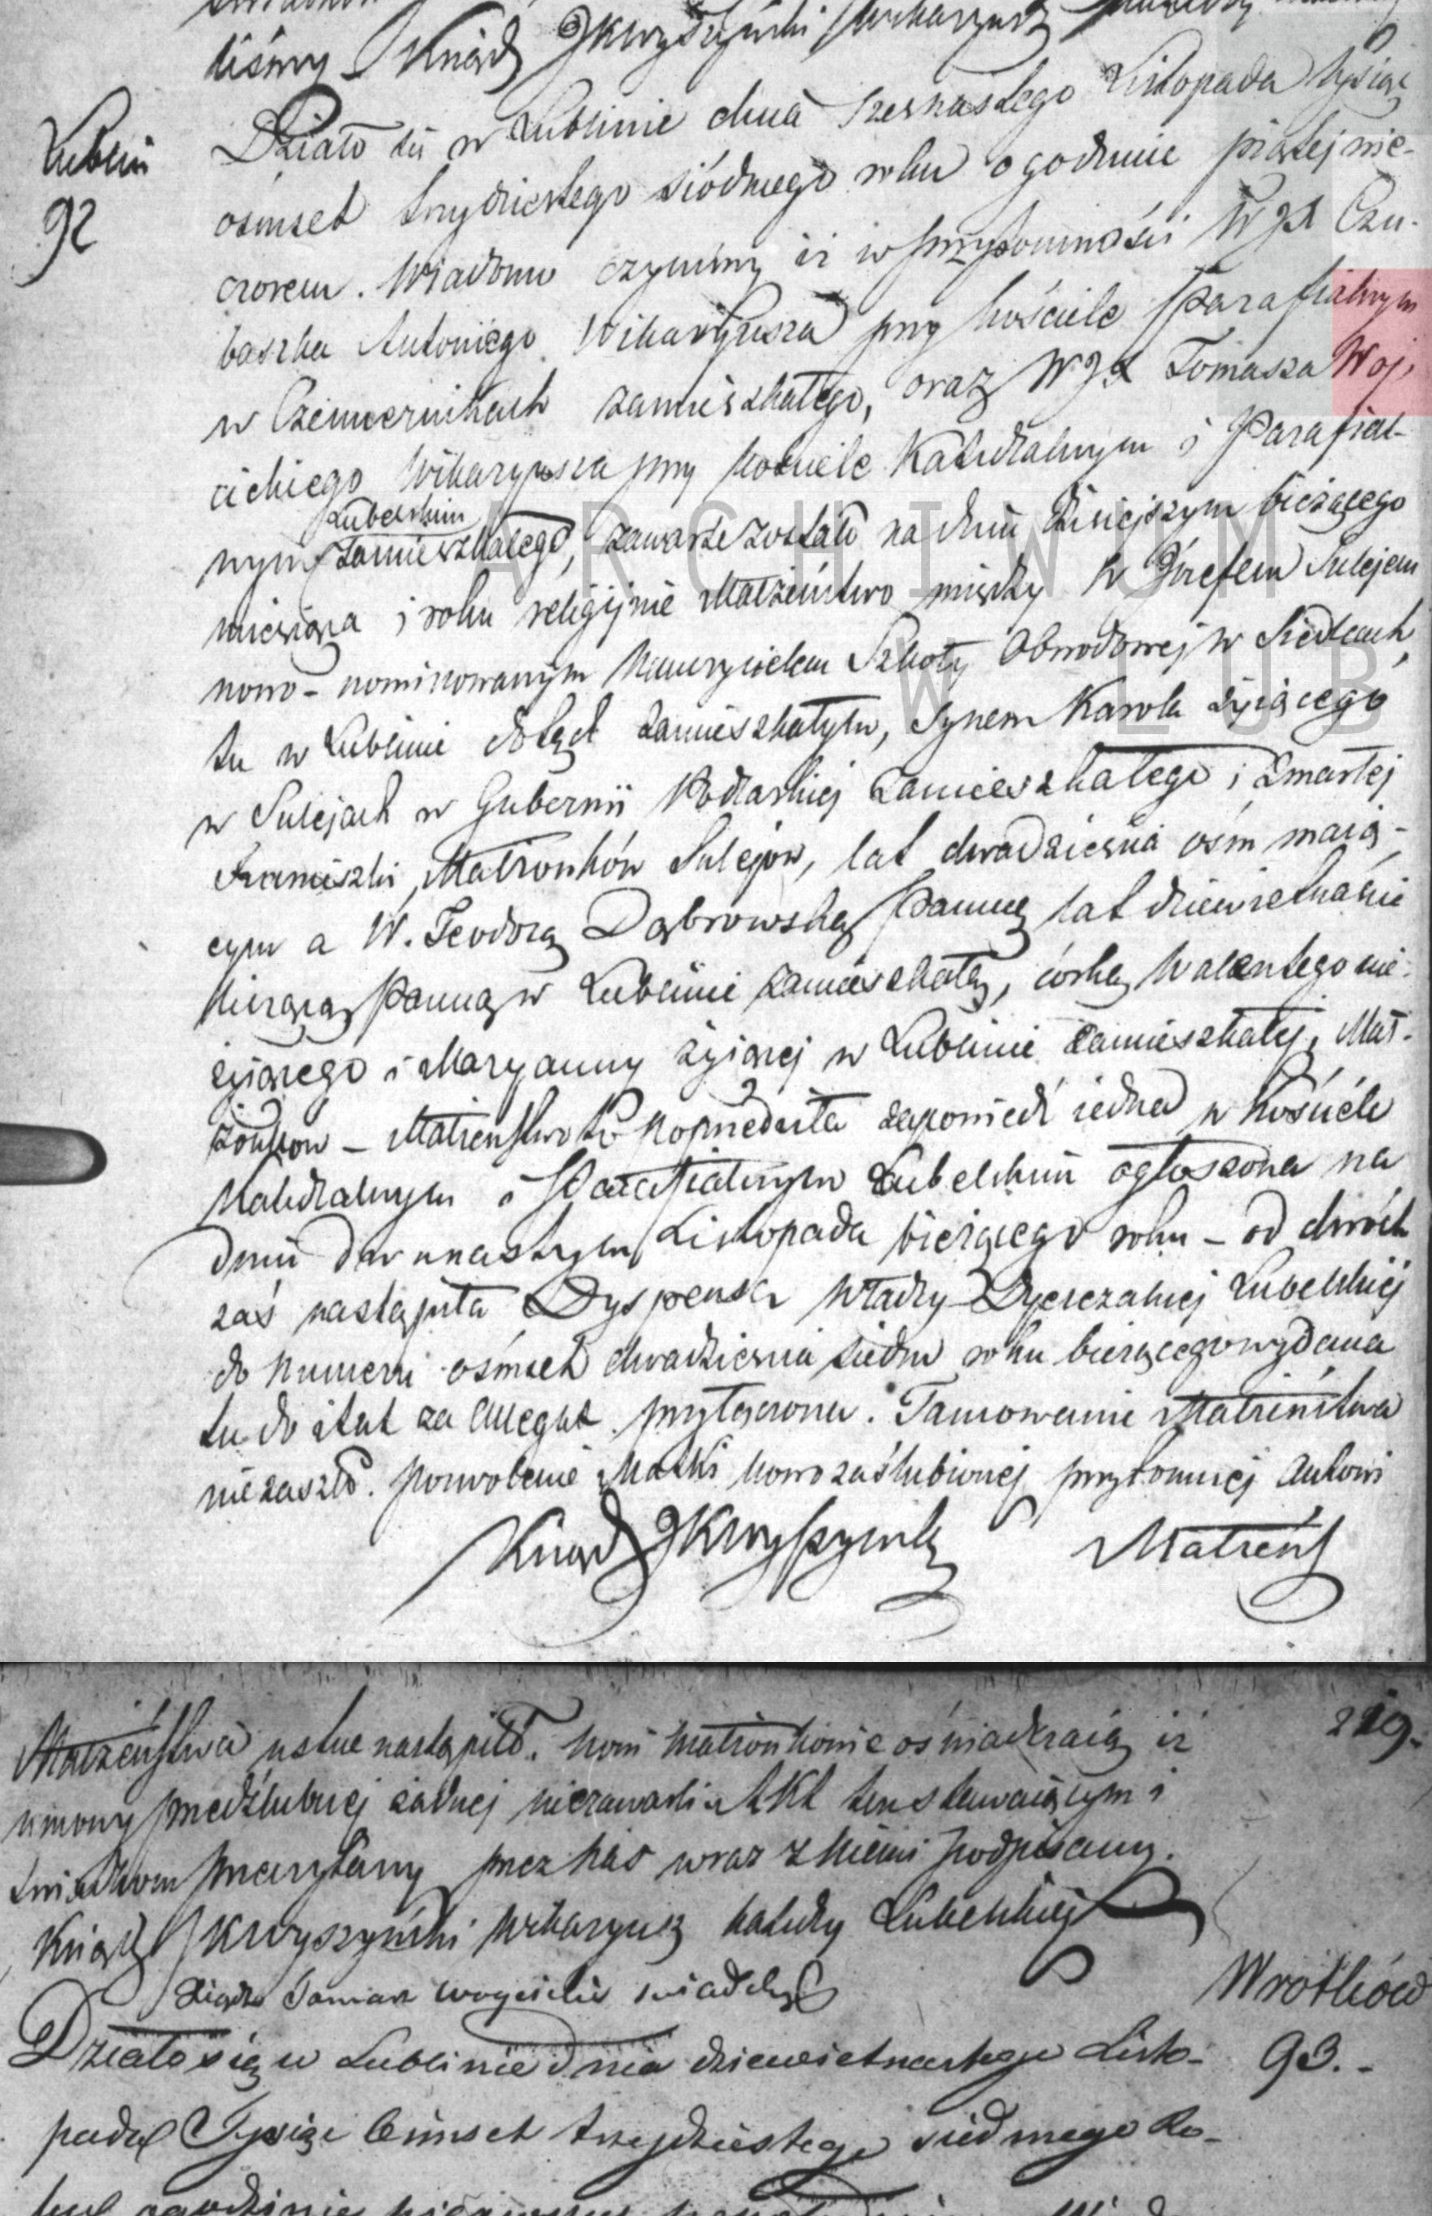 liśmy – Ksiądz J Kwyszyński Wikaryusz
Lublin
92
Działo się w Lublinie dnia szesnastego Listopada tysiąc
ośmset trzydziestego siódmego roku o godzinie piątej wie-
czorem. Wiadomo czynimy iż w przytomności W JX Czu-
baszka Antoniego Wikaryusza przy kościele Parafialnym
w Czemiernikach zamieszkałego, oraz W JX Tomasza Woj-
cickiego Wikaryusza przy kościele Katedralnym i Parafial-
Lubelskim
nym zamieszkałego, zawarte zostało na dniu dzisiejszym bieżącego
miesiąca i roku religijnie Małżeństwo między W Józefem Sulejem
nowo-nominowanym Nauczycielem Szkoły Obwodowej w Siedlcach,
tu w Lublinie dotąd zamieszkałym, Synem Karola żyiącego
w Sulejach w Gubernii Podlaskiej zamieszkałego i zmarłej
Franciszki, Małżonków Sulejów, lat dwadzieścia ośm maią-
cym a W. Teodorą Dąbrowską Panną lat dziewietnaście
liczącą Panną w Lublinie zamieszkałą, córką Walentego nie-
żyiącego i Maryanny żyiącej w Lublinie zamieszkałej, Mał-
żonków – Małżeństwo to poprzedziła zapowiedź iedna w kościele
Katedralnym i Parafialnym Lubelskim ogłoszona na
dniu dwunastym Listopada bieżącego roku – od dwóch
zaś nastąpiła Dyspensa Władzy Dyecezalnej Lubelskiej
do Numeru ośmset dwadzieścia siedm roku bieżącego wydana
tu do Akt za Allegat przyłączona. Tamowanie Małżeństwa
nie zaszło. pozwolenie Matki nowozaślubionej przytomnej Aktowi
Ksiądz J Kwyszyński Małżeńs
ARCHIWUM
W LUB
219.
Małżeństwa ustne nastąpiło. Nowi Małżonkowie oświadczaią iż
umowy przedślubnej żadnej niezawarli. Akt ten stawaiącym i
świadkom przeczytany przez nas wraz z niemi podpisany.
Ksiądz J Kwyszyński Wikaryusz Katedry Lubelskiej
Xiądz Tomasz Woycicki świadek
Wrotków
93.-
Działo się w Lublinie dnia dziewietnastego Listo-
pada Tysiąc Ośmset trzydziestego siedmego Ro-
ku o godzinie